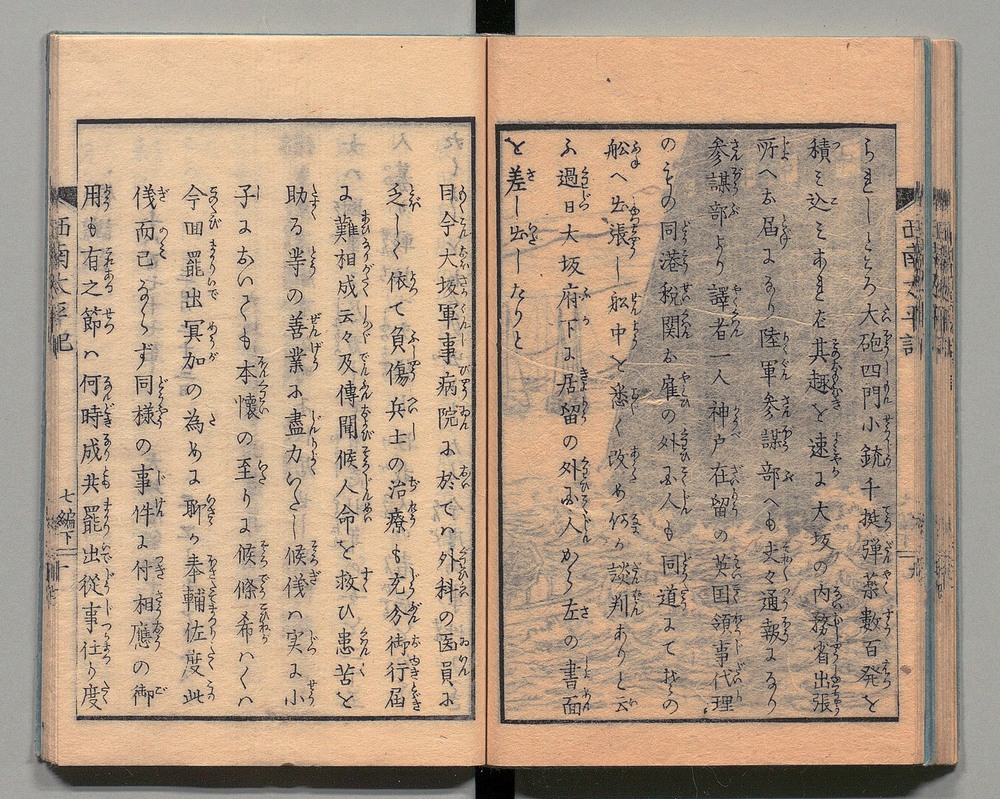 られしところ大砲四門小銃千挺弾薬数百発を
積み込みあれば其趣を速に大坂の内務省出張
所へお届になり陸軍参謀部へも夫々通報になり
参謀部より譯者一人神戸在留の英国領事代理
の同港税関お雇の外国人も同道にて
舩へ出張し舩中を悉く改め何か談判ありと云
ふ過日大坂府下に居留の外国人から左の書面
を差し出したりと
西南太平記
目今大坂軍事病院に於ては外科の医員に
乏しく依て負傷兵士の治療も充分御行届
に難相成云々及傳聞候人命を救ひ患苦を
助る等の善業に盡力いたし候儀は実に小
子においても本懐の至りに候條希はくは
今回罷出冥加の為めに聊か奉輔佐度此
儀而已ならず同様の事件に付相應の御
用も有之節ハ何時成共罷出從事仕り度
西南太平記
七編下
十